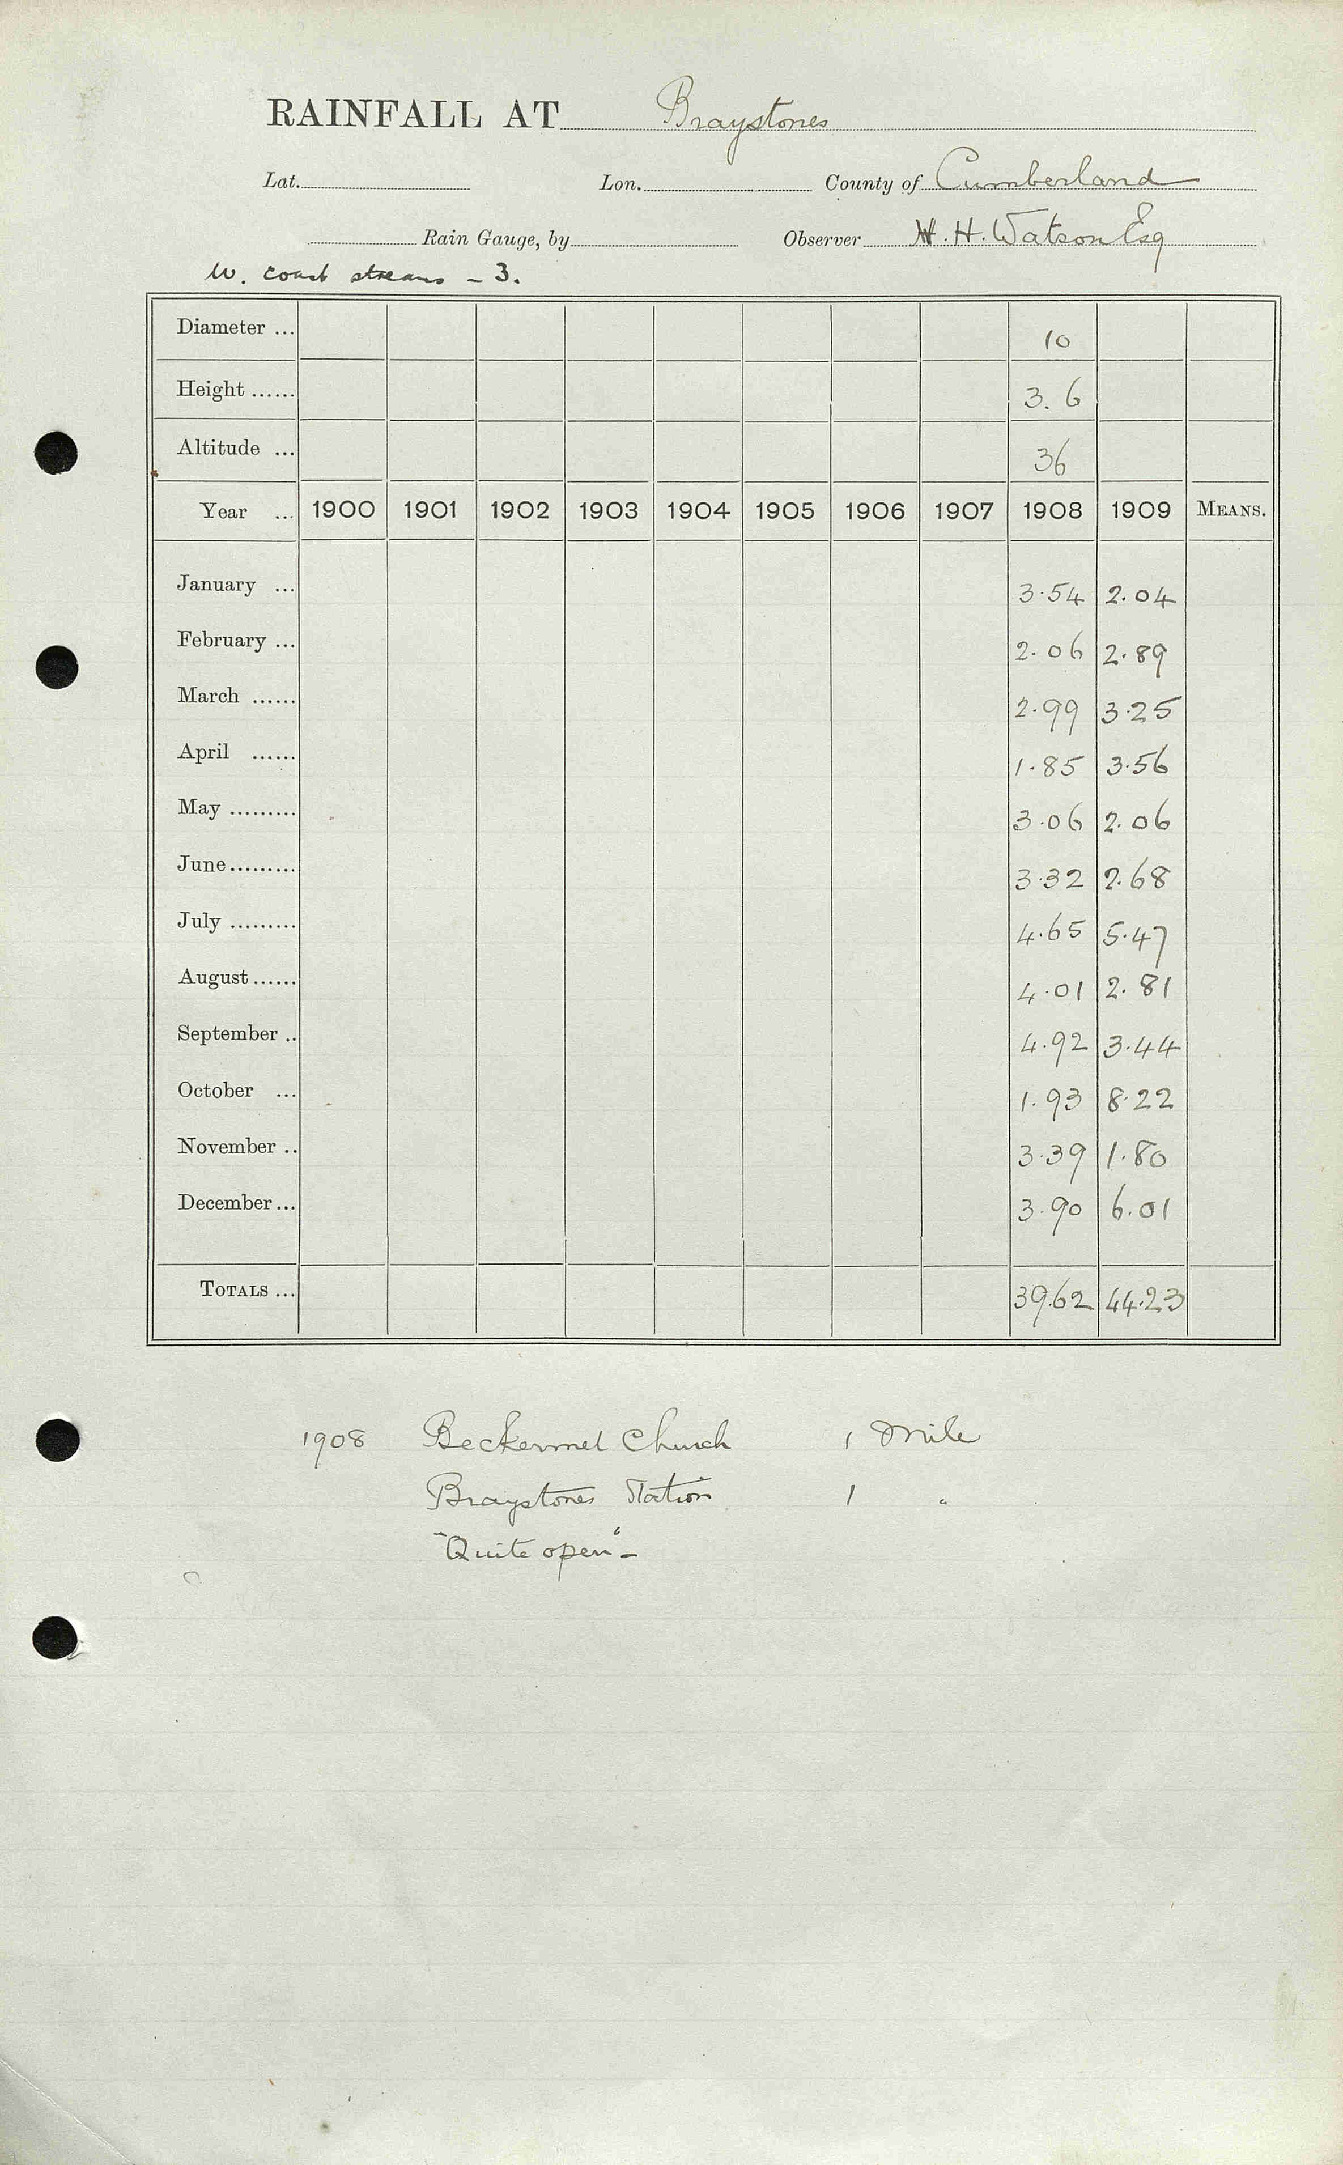 RAINFALL AT Braystones
Lat. Lon. County of Cumberland
Rain Gauge, by Observer H. Watson Esq
W. coast streams - 3.
Diameter ... 10
Height ...... 3. 6
Altitude ... 36
Year ... 1900 1901 1902 1903 1904 1905 1906 1907 1908 1909 MEANS.
January ... 3.54 2.04
February ... 2.06 2.89
March ...... 2.99 3.25
April ...... 1.85 3.56
May ......... 3.06 2.06
June ......... 3.32 2.68
July ......... 4.65 5.47
August ...... 4.01 2.81
September .. 4.92 3.44
October ... 1.93 8.22
November .. 3.39 1.80
December ... 3.90 6.01
TOTALS ... 39.62 44.23
1908 Beckermet Church 1 Mile
Braystones Station 1 "
"Quite open" -